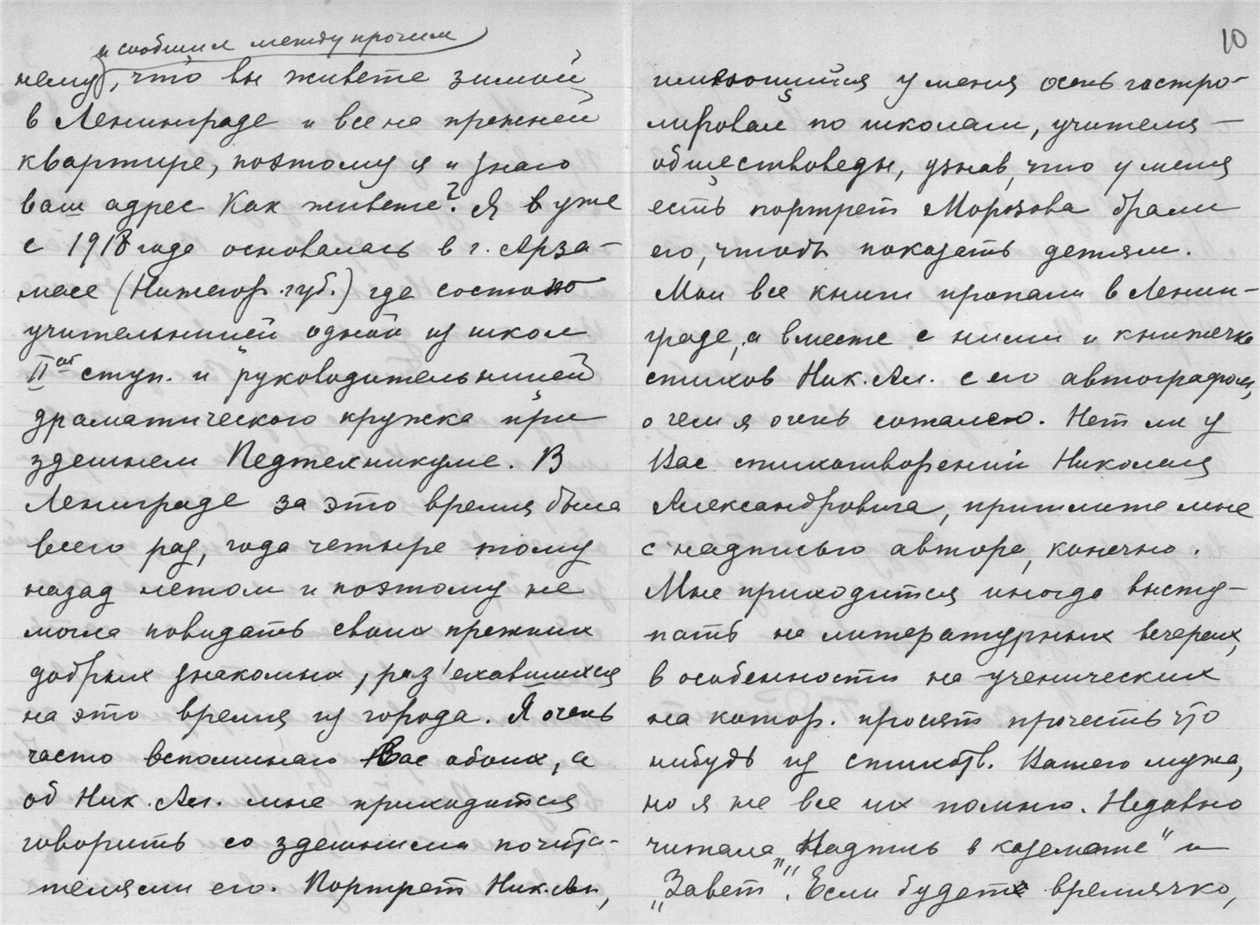 и сообщил между прочим
нему, что вы живете зимой
в Ленинграде и все на прежней
квартире, поэтому я и знаю
ваш адрес Как живете? Я уже
с 1918 года основалась в г. Арза-
масе (Нижегор. губ.) где состою
учительницей одной из школ
II ой ступ. и руководительницей
драматического кружка при
здешнем Педтехникуме. В
Ленинграде за это время была
всего раз, года четыре тому
назад летом и поэтому не
могла повидать своих прежних
добрых знакомых, раз'ехавшихся
на это время из города. Я очень
часто вспоминаю Вас обоих, а
об Ник. Ал. мне приходится
говорить со здешними почита-
телями его. Портрет Ник. Ал,
10
имеющийся у меня осень гастро-
лировал по школам, учителя –
обществоведы, узнав, что у меня
есть портрет Морозова брали
его, чтобы показать детям.
Мои все книги пропали в Ленин-
граде, а вместе с ними и книжечка
стихов Ник. Ал. с его автографом,
о чем я очень сожалею. Нет ли у
Вас стихотворений Николая
Александровича, пришлите мне
с надписью автора, конечно.
Мне приходится иногда высту-
пать на литературных вечерах,
в особенности на ученических
на котор. просят прочесть что
нибудь из стихотв. Вашего мужа,
но я не все их помню. Недавно
читала „Надпись в каземате" и
„Завет". Если будет времячко,